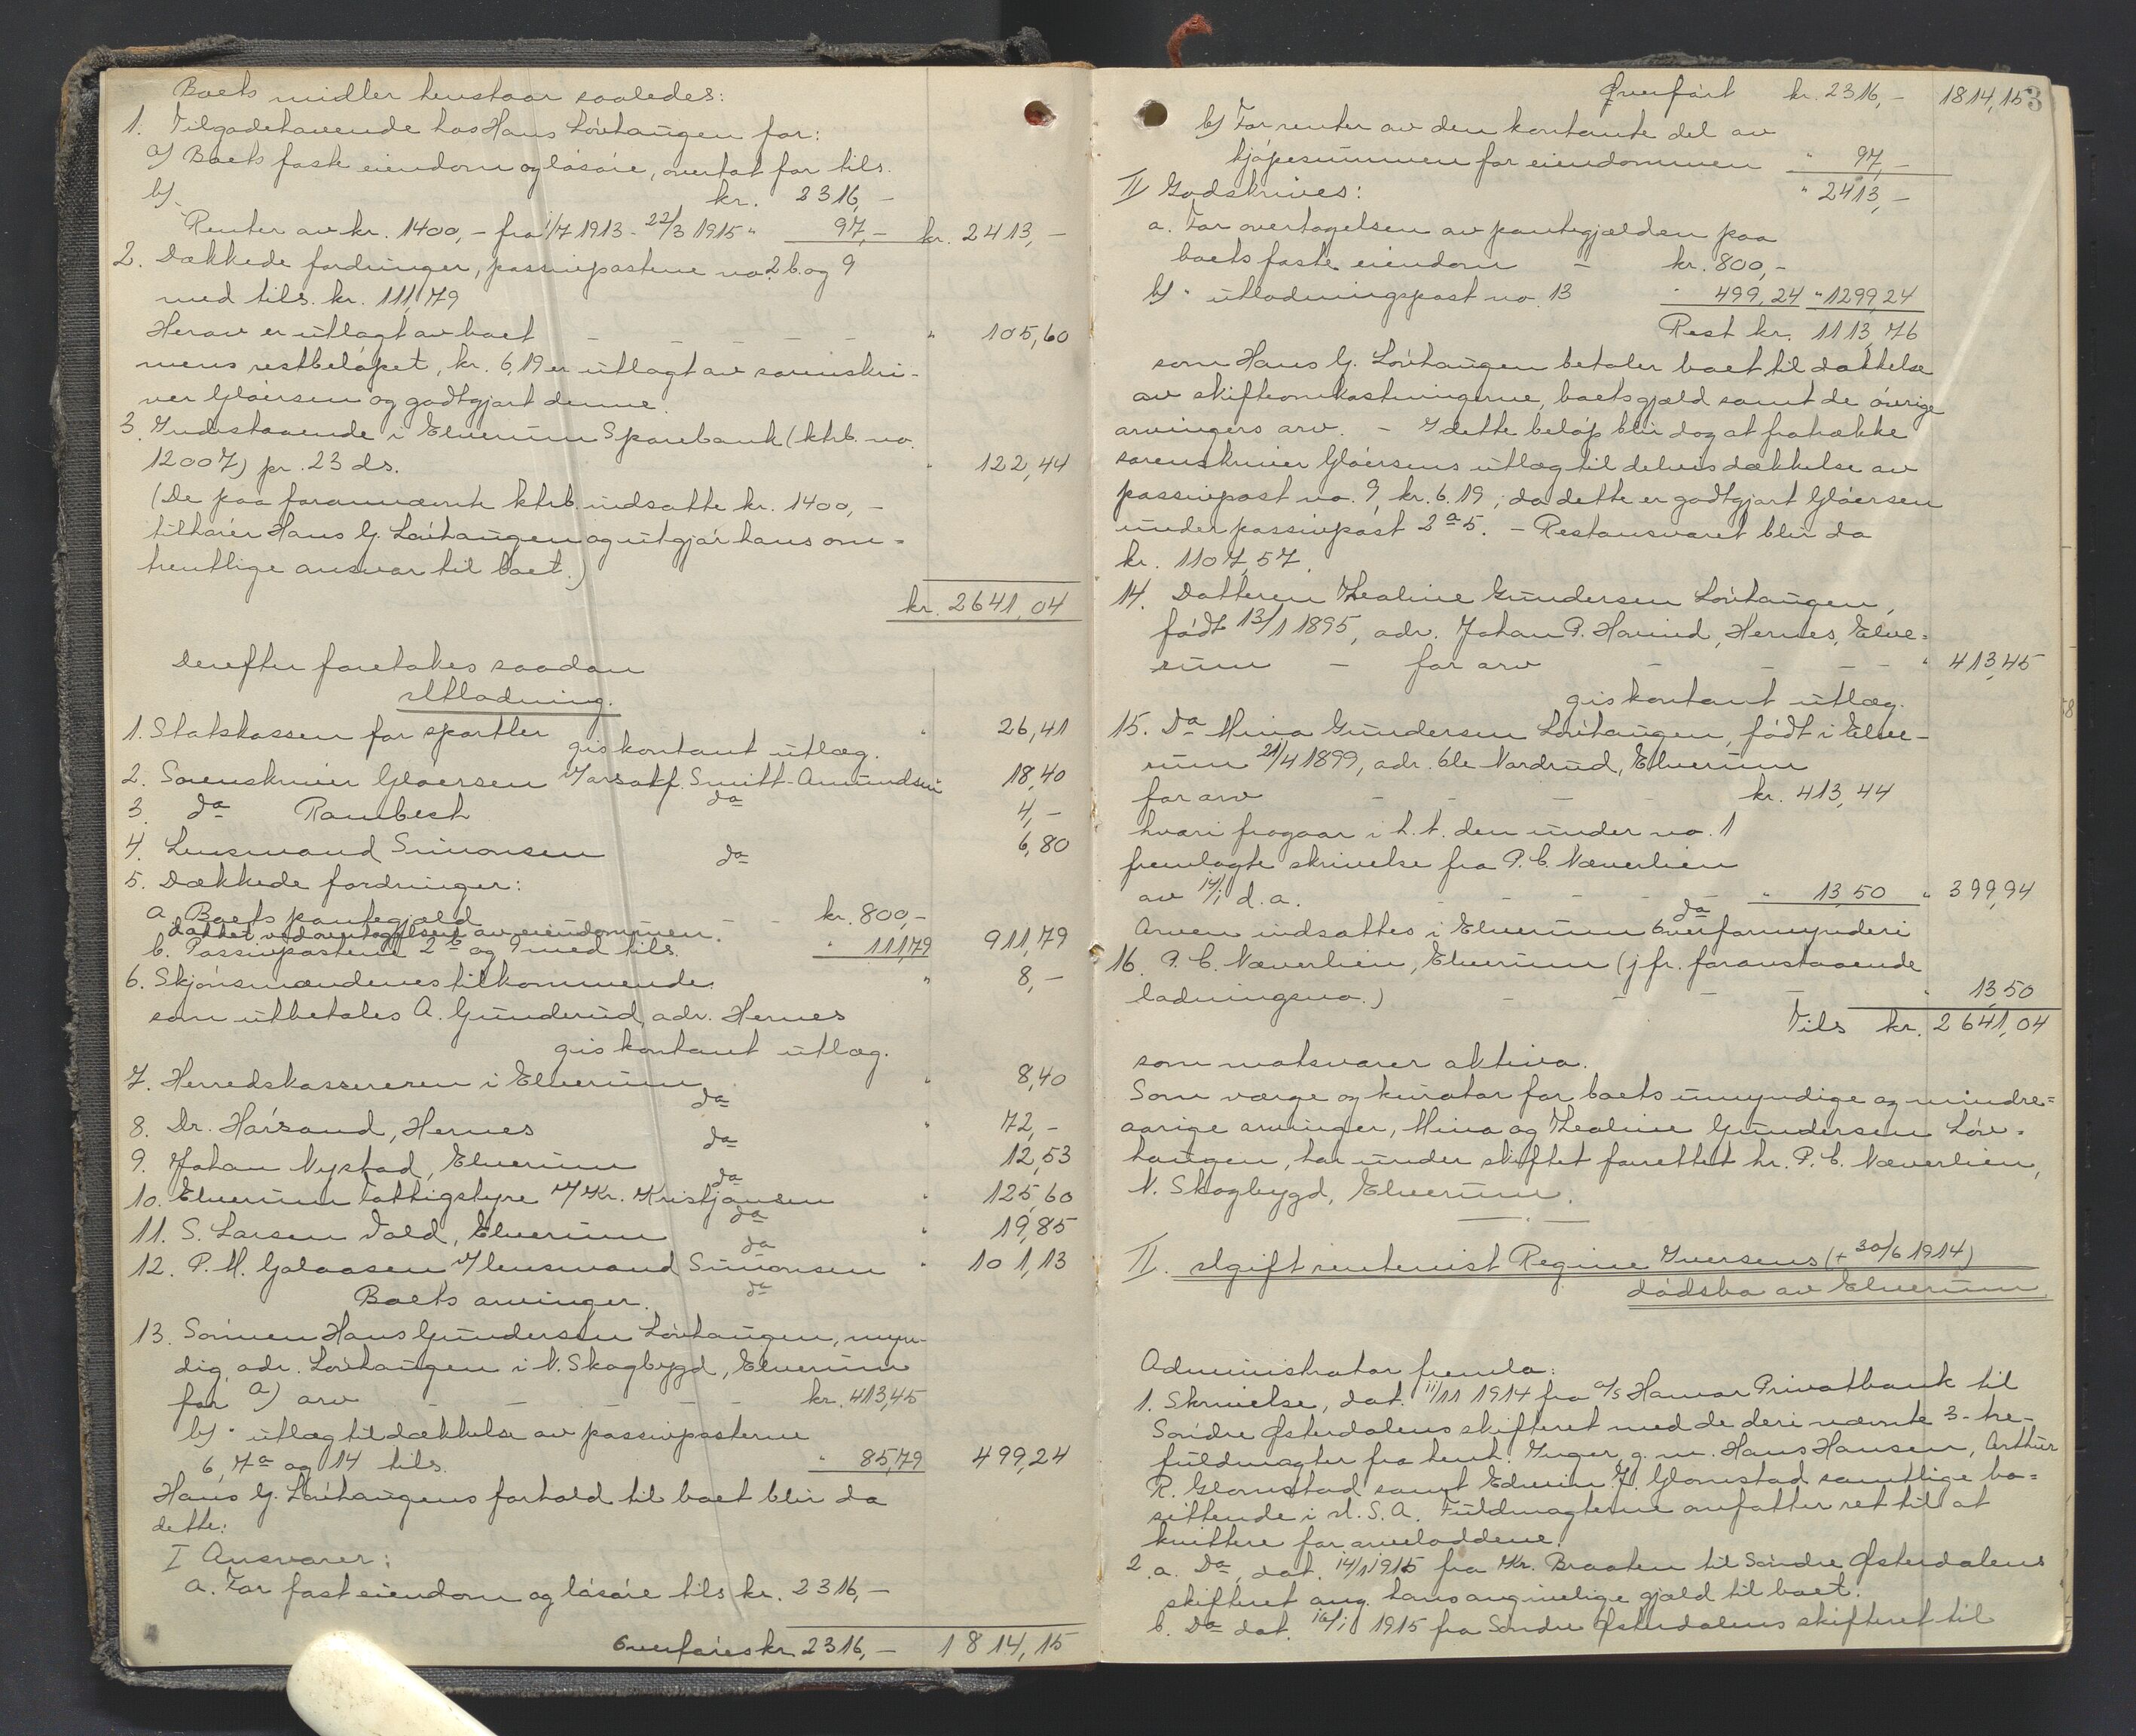 Boets midler henstaar saaledes:
1. Tilgodehavende hos Hans Lövhaugen for:
a) Boets faste eiendom og lösöre, overtat for tils.
kr. 2316,-
b) Renter av kr. 1400,- fra 1/7 1913 - 22/3 1915 " 97,- kr. 2413,-
2. Dækkede fordringer, passivpostene no. 2 b. og 9
med tils. kr. 111,79
Herav er utlagt av boet - - - - - " 105,60
mens restbelöpet, kr. 6,19 er utlagt av sorenskri-
ver Glöersen og godtgjort denne.
3. Indestaaende i Elverum Sparebank (ktrb. no.
12007) pr. 23 ds. " 122,44
(De paa forannævnte ktrb. indsatte kr. 1400,-
tilhörer Hans G. Lövhaugen og utgjör hans om-
trentlige ansvar til boet.)
kr. 2641,04
Derefter foretokes saadan
Utlodning.
1. Statskassen for sportler " 26,41
gis kontant utlæg.
2. Sorenskriver Gloersen v/ orsakf. Smitt-Amundsen 18,40
3. do Rambech do 4,-
4. Lensmand Simonsen do 6,80
5. Dækkede fordringer:
a. Boets pantegjæld - - kr. 800,-
dækket ved overtagelsen av eiendommen.
b. Passivpostene 2 b og 9 med tils. " 111,79 911,79
6. Skjönsmændenes tilkommende " 8,-
som utbetales A. Gunderud, adr. Hernes
gis kontant utlæg.
7. Herredskassereren i Elverum " 8,40
do
8. Dr. Hörsand, Hernes do " 72,-
9. Johan Nystad, Elverum do 12,53
10. Elverum Fattigstyre v/ Kr. Kristiansen do " 125,60
11. S. Larsen Vold, Elverum do " 19,85
12. P. M. Galaasen v/ lensmand Simonsen " 101,13
do
Boets arvinger.
13. Sönnen Hans Gundersen Lövhaugen, myn-
dig, adr. Lövhaugen i N. Skogbygd, Elverum
for a) arv - - - - - kr. 413,45
b) " utlæg til dækkelse av passivposterne
6, 7a og 14 tils. " 85,79 499,24
Hans G. Lövhaugens forhold til boet blir da
dette:
I Ansvarer:
a. For fast eiendom og lösöre tils kr. 2316,-
Overföres kr. 2316,- 1814,15
Overfört kr. 2316,- 1814,15
3
b) For renter av den kontante del av
kjöpesummen for eiendommen " 97,-
" 2413,-
II Godskrives:
a. For overtagelsen av pantegjælden paa
boets faste eiendom - kr. 800,-
b) " utlodningspost no. 13 " 499,24 " 1299,24
Rest kr. 1113,76
som Hans G. Lövhaugen betaler boet til dækkelse
av skifteomkostningerne, boets gjæld samt de övrige
arvingers arv. - I dette belöp blir dog at fratrække
sorenskriver Glöersens utlæg til delvis dækkelse av
passivpost no. 9, kr. 6.19, da dette er godtgjort Glöersen
under passivpost 2 a 5. - Restansvaret blir da
kr. 1107,57.
14. Datteren Thealine Gundersen Lövhaugen,
född 13/1 1895, adr. Johan P. Havind, Hernes, Elve-
rum - for arv - - - - " 413,45
gis kontant utlæg.
15. Do Mina Gundersen Lövhaugen, födt i Elve-
rum 21/4 1899, adr. Ole Nordrud, Elverum
for arv - - - kr. 413,44
hvori fragaar i h. t. den under no. 1
fremlagte skrivelse fra P. C. Næverlien
av 14/1 d. a. - - - - " 13,50 " 399,94
do
Arven indsættes i Elverum Overformynderi
16. P. C. Næverlien, Elverum (jfr. foranstaaende
lodningsno.) - - - - " 13,50
Tils kr. 2641,04
som motsvarer aktiva.
Som værge og kurator for boets umyndige og mindre-
aarige arvinger, Mina og Thealine Gundersen Löv-
haugen, har under skiftet forrettet hr. P. C. Næverlien,
N. Skogbygd, Elverum.
II. Ugift rentenist Regine Iversens († 30/6 1914)
dödsbo av Elverum.
Administrator fremla:
1. Skrivelse, dat. 11/11 1914 fra a/s Hamar Privatbank til
Söndre Østerdalens skifteret med de deri nævnte 3 - tre -
fuldmagter fra henh. Inger, g. m. Hans Hansen, Arthur
R. Glomstad samt Edwin J. Glomstad samtlige bo-
sittende i U. S. A. Fuldmagterne omfatter ret til at
kvittere for arveloddene.
2. a. Do, dat. 14/1 1915 fra Kr. Braaten til Söndre Østerdalens
skifteret ang. hans angivelige gjæld til boet.
b. Do dat. 16/1 1915 fra Söndre Østerdalens skifteret til